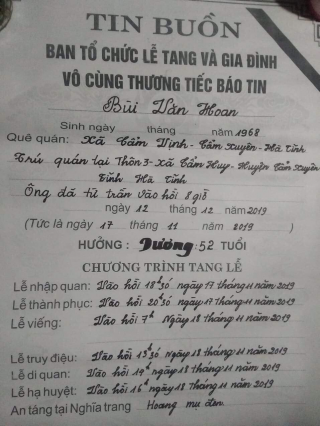 TIN BUỒN
BAN TỔ CHỨC LỄ TANG VÀ GIA ĐÌNH
VÔ CÙNG THƯƠNG TIẾC BÁO TIN
Bùi Văn Hoan
Sinh ngày tháng năm 1968
Quê quán: Xã Cẩm Vịnh - Cẩm Xuyên - Hà Tĩnh
Trú quán tại Thôn 3 - Xã Cẩm Huy - Huyện Cẩm Xuyên
Tỉnh Hà Tĩnh
Ông đã từ trần vào hồi 8 giờ
ngày 12 tháng 12 năm 2019
(Tức là ngày 17 tháng 11 năm 2019 )
HƯỞNG : Dương: 52 TUỔI
CHƯƠNG TRÌNH TANG LỄ
Lễ nhập quan: Vào hồi 18 30 ngày 17 tháng 11 năm 2019
Lễ thành phục: Vào hồi 20 30 ngày 17 tháng 11 năm 2019
Lễ viếng: Vào hồi 7h Ngày 18 tháng 11 năm 2019
Lễ truy điệu: Vào hồi 15 30 Ngày 18 tháng 11 năm 2019
Lễ di quan: Vào hồi Ngày 18 tháng 11 năm 2019
Lễ hạ huyệt: Vào hồi 16 ngày 18 tháng 11 năm 2019
An táng tại Nghĩa trang Hoang mu đen.